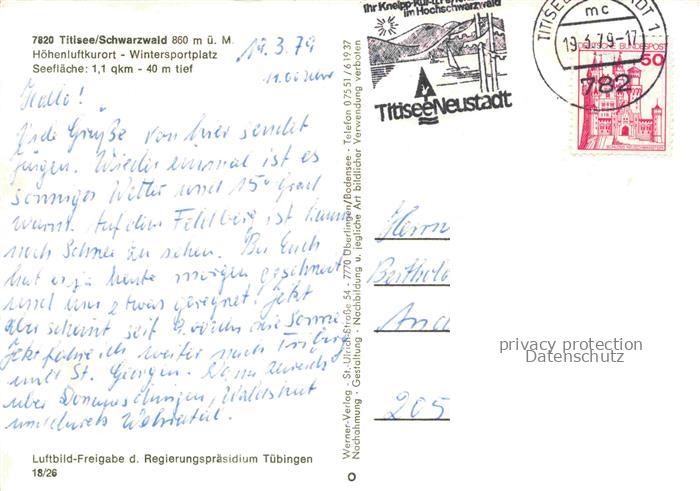 7820 Titisee/Schwarzwald 860 m ü. M.
Höhenluftkurort - Wintersportplatz
Seefläche: 1,1 qkm - 40 m tief
19.3.79
11.00 Uhr
Hallo!
Viele Grüße von hier sendet
Jürgen. Wieder einmal ist es
sonniges Wetter und 15° Grad
warm. Auf dem Feldberg ist kaum
noch Schnee zu sehen. Bei Euch
hat es ja heute morgen geschneit
und uns etwas geregnet! Jetzt
aber scheint seit die Sonne
Jetzt fahre ich weiter nach Triberg
und St. Georgen. Dann zurück
über Donaueschingen, Waldshut
und durchs Wehratal.
Luftbild-Freigabe d. Regierungspräsidium Tübingen
18/26
Werner-Verlag - St.-Ulrich-Straße 54 - 7770 Überlingen/Bodensee - Telefon 07551/61937
Nachahmung - Gestaltung - Nachbildung u. jegliche Art bildlicher Verwendung verboten
Ihr Kneipp-Kur-
im Hochschwarzwald
TitiseeNeustadt
TITISEE-NEUSTADT 1
mc
19.3.79-17
782
DEUTSCHE BUNDESPOST
50
Herrn
Berthold
And
205
privacy protection
Datenschutz